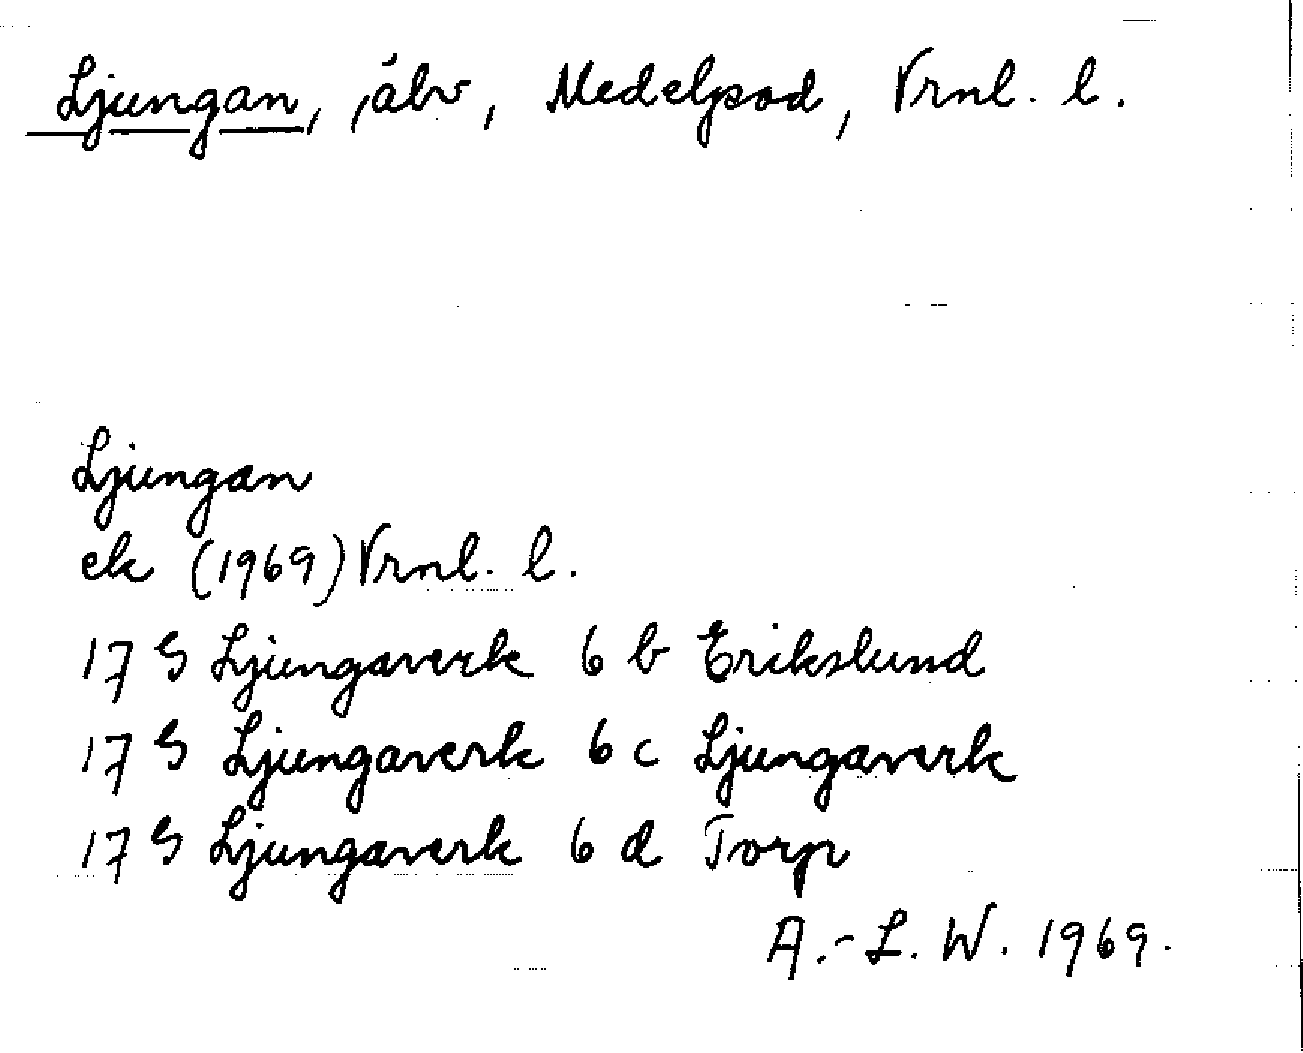 Ljungan, älv, Medelpad, Vrnl. l.
Ljungan
ek (1969) Vrnl. l.
17 G Ljungaverk 6 b Erikslund
17 G Ljungaverk 6 c Ljungaverk
17 G Ljungaverk 6 d Torp
A.-L. W. 1969.